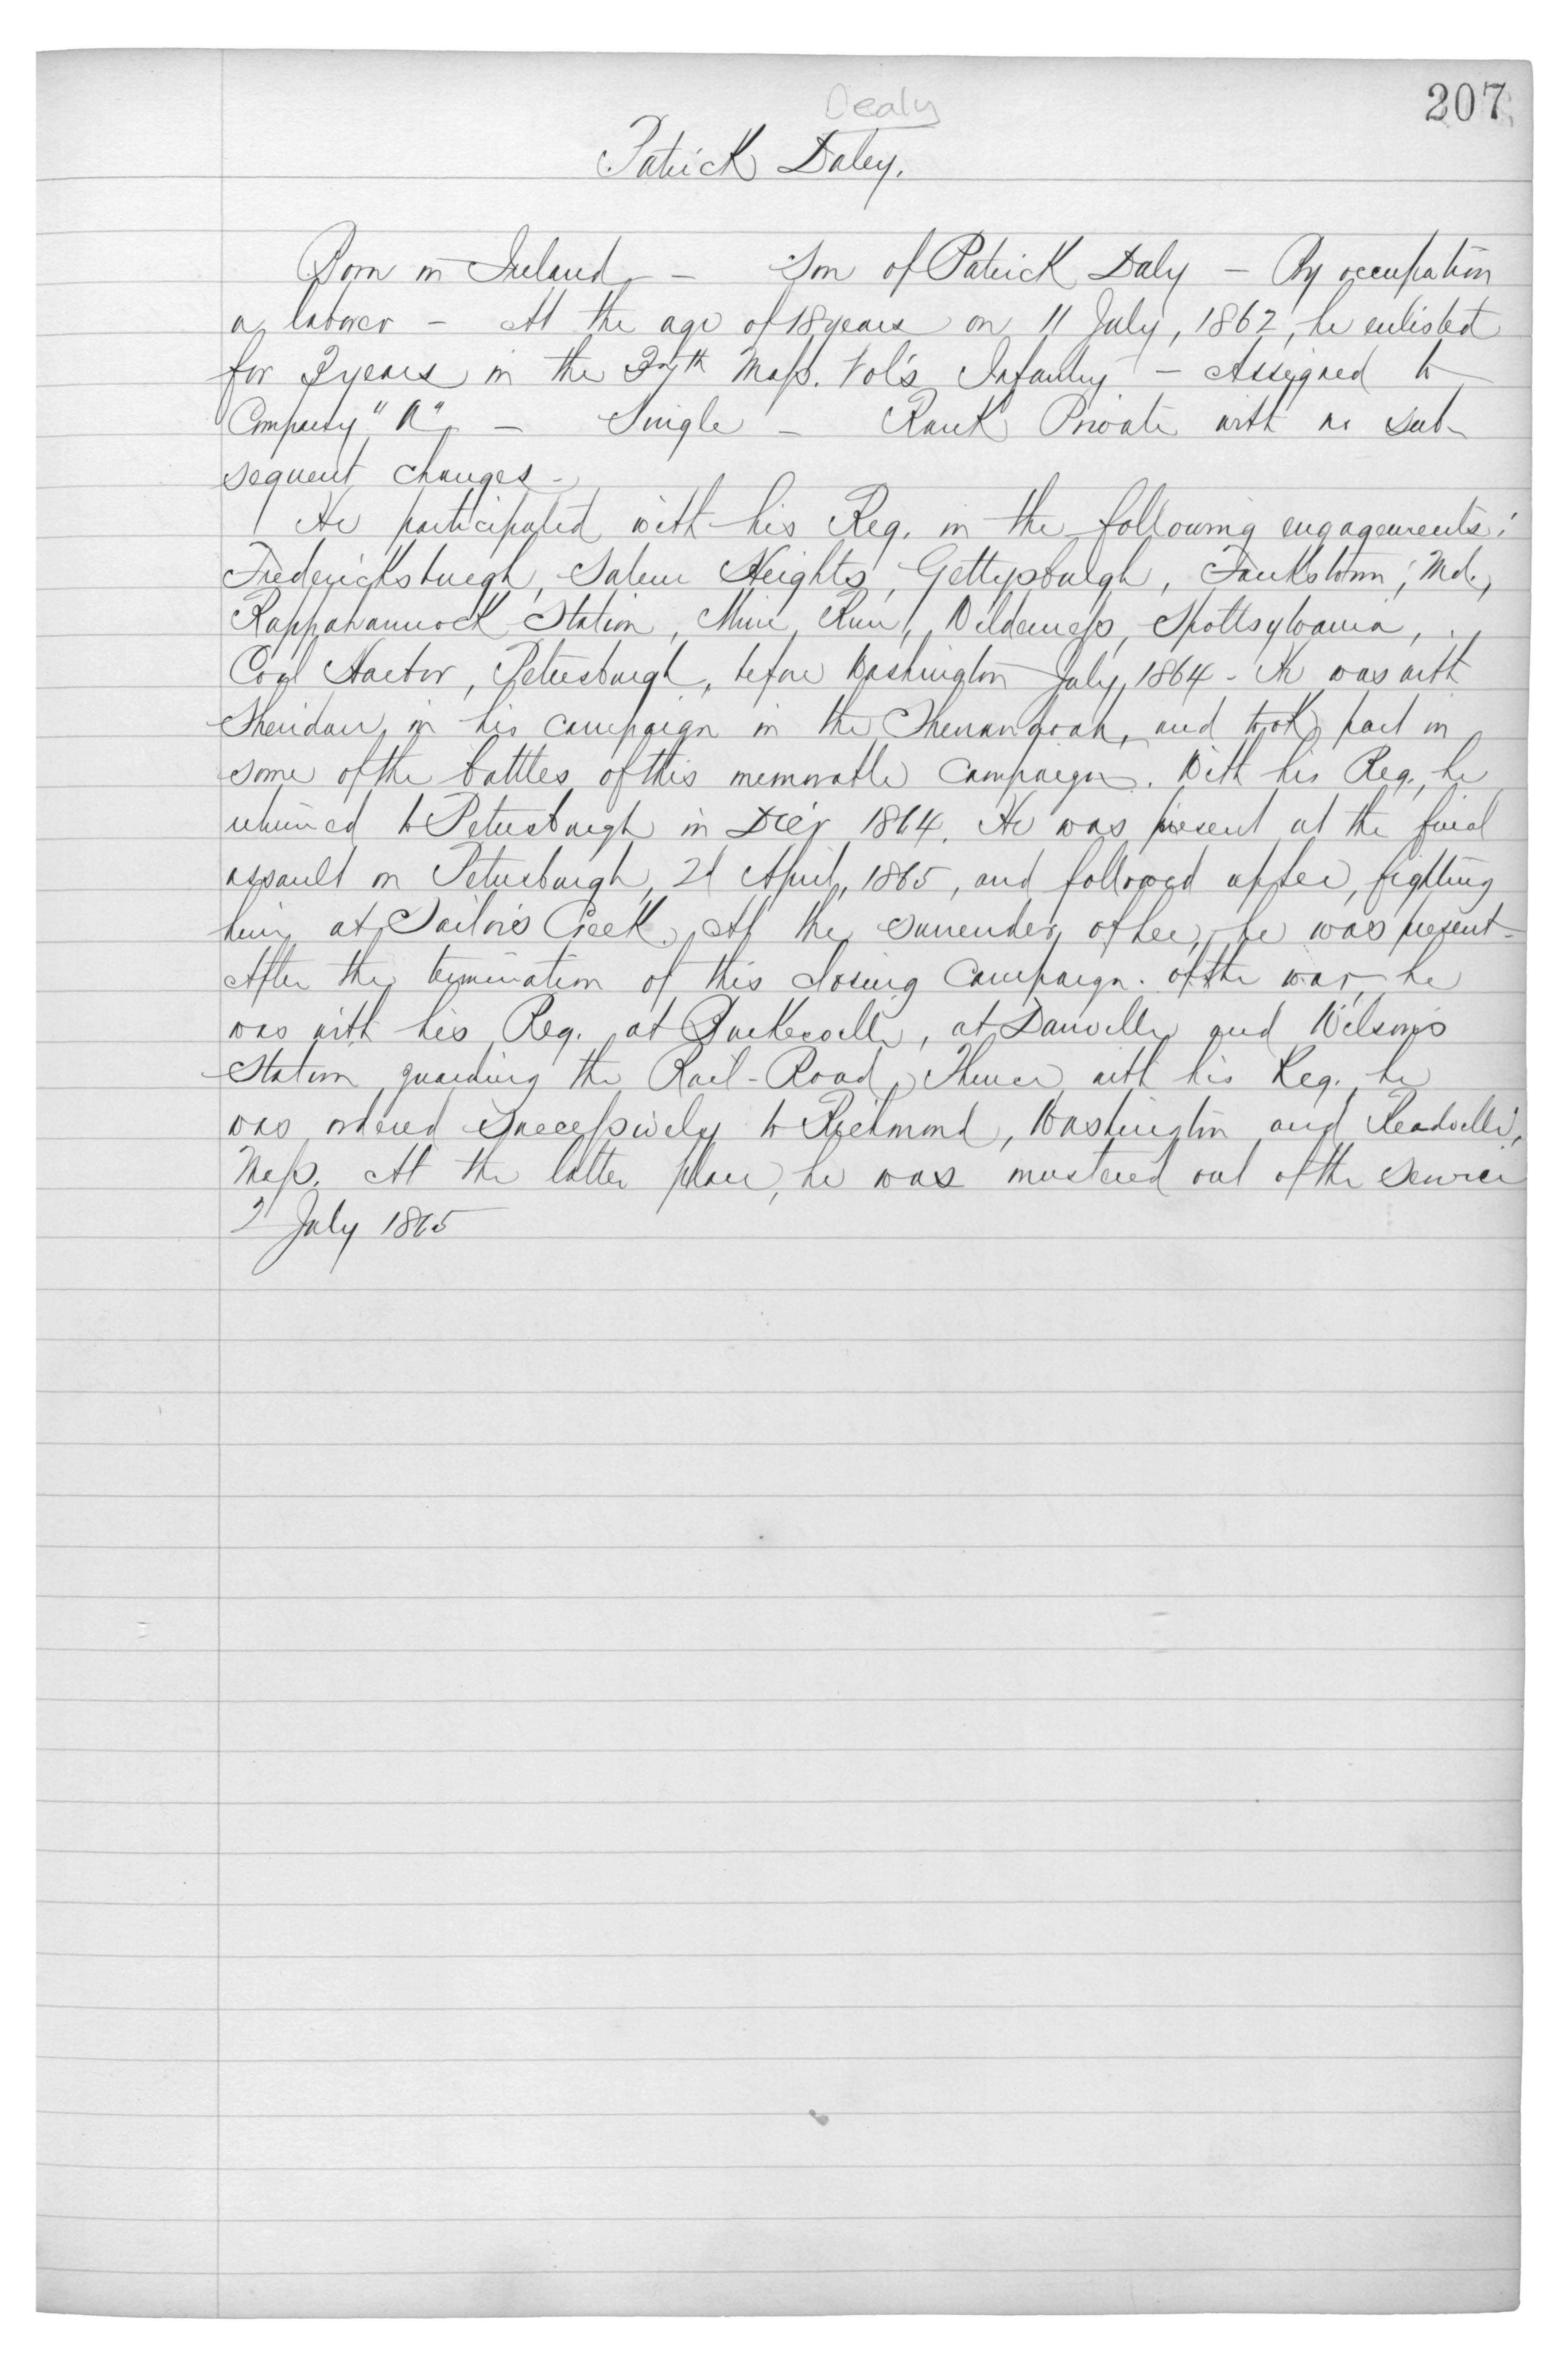 207
Dealy
Patrick Daley.
Born in Ireland - Son of Patrick Daly - By occupation
a laborer - At the age of 18 years on 11 July, 1862, he enlisted
for 3 years in the 37th Mass. Vol's Infantry - Assigned to
Company - Single - Rank Private with no sub-
sequent changes -
He participated with his Reg. in the following engagements:
Fredericksburgh, Salem Heights, Gettysburgh, Funkstown, Md.,
Rappahannock Station, Mine Run, Wilderness, Spottsylvania,
Cool Harbor, Petersburgh, before Washington July, 1864 - He was with
Sheridan in his campaign in the Shenandoah, and took part in
some of the battles of this memorable campaign. With his Reg., he
returned to Petersburgh in Dec'r 1864. He was present at the final
assault on Petersburgh, 2d April, 1865, and followed after, fighting
him at Sailor's Creek. At the surrender of Lee, he was present -
After the termination of this closing campaign of the war, he
was with his Reg. at Burkesville, at Danville and Wilson's
Station guarding the Rail-Road. Thence with his Reg. he
was ordered successively to Richmond, Washington and Readville,
Mass. At the latter place, he was mustered out of the service
2 July 1865